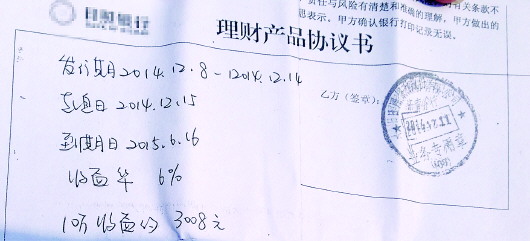 责任与风险有清楚和准确的理解,甲方做出的
思表示。甲方确认银行打印记录无误。
理财产品协议书
发行期2014.12.8-2014.12.14
起息日2014.12.15
乙方(签章):
到期日2015.6.16
业务专用章
收益率 6%
10万收益约3008元